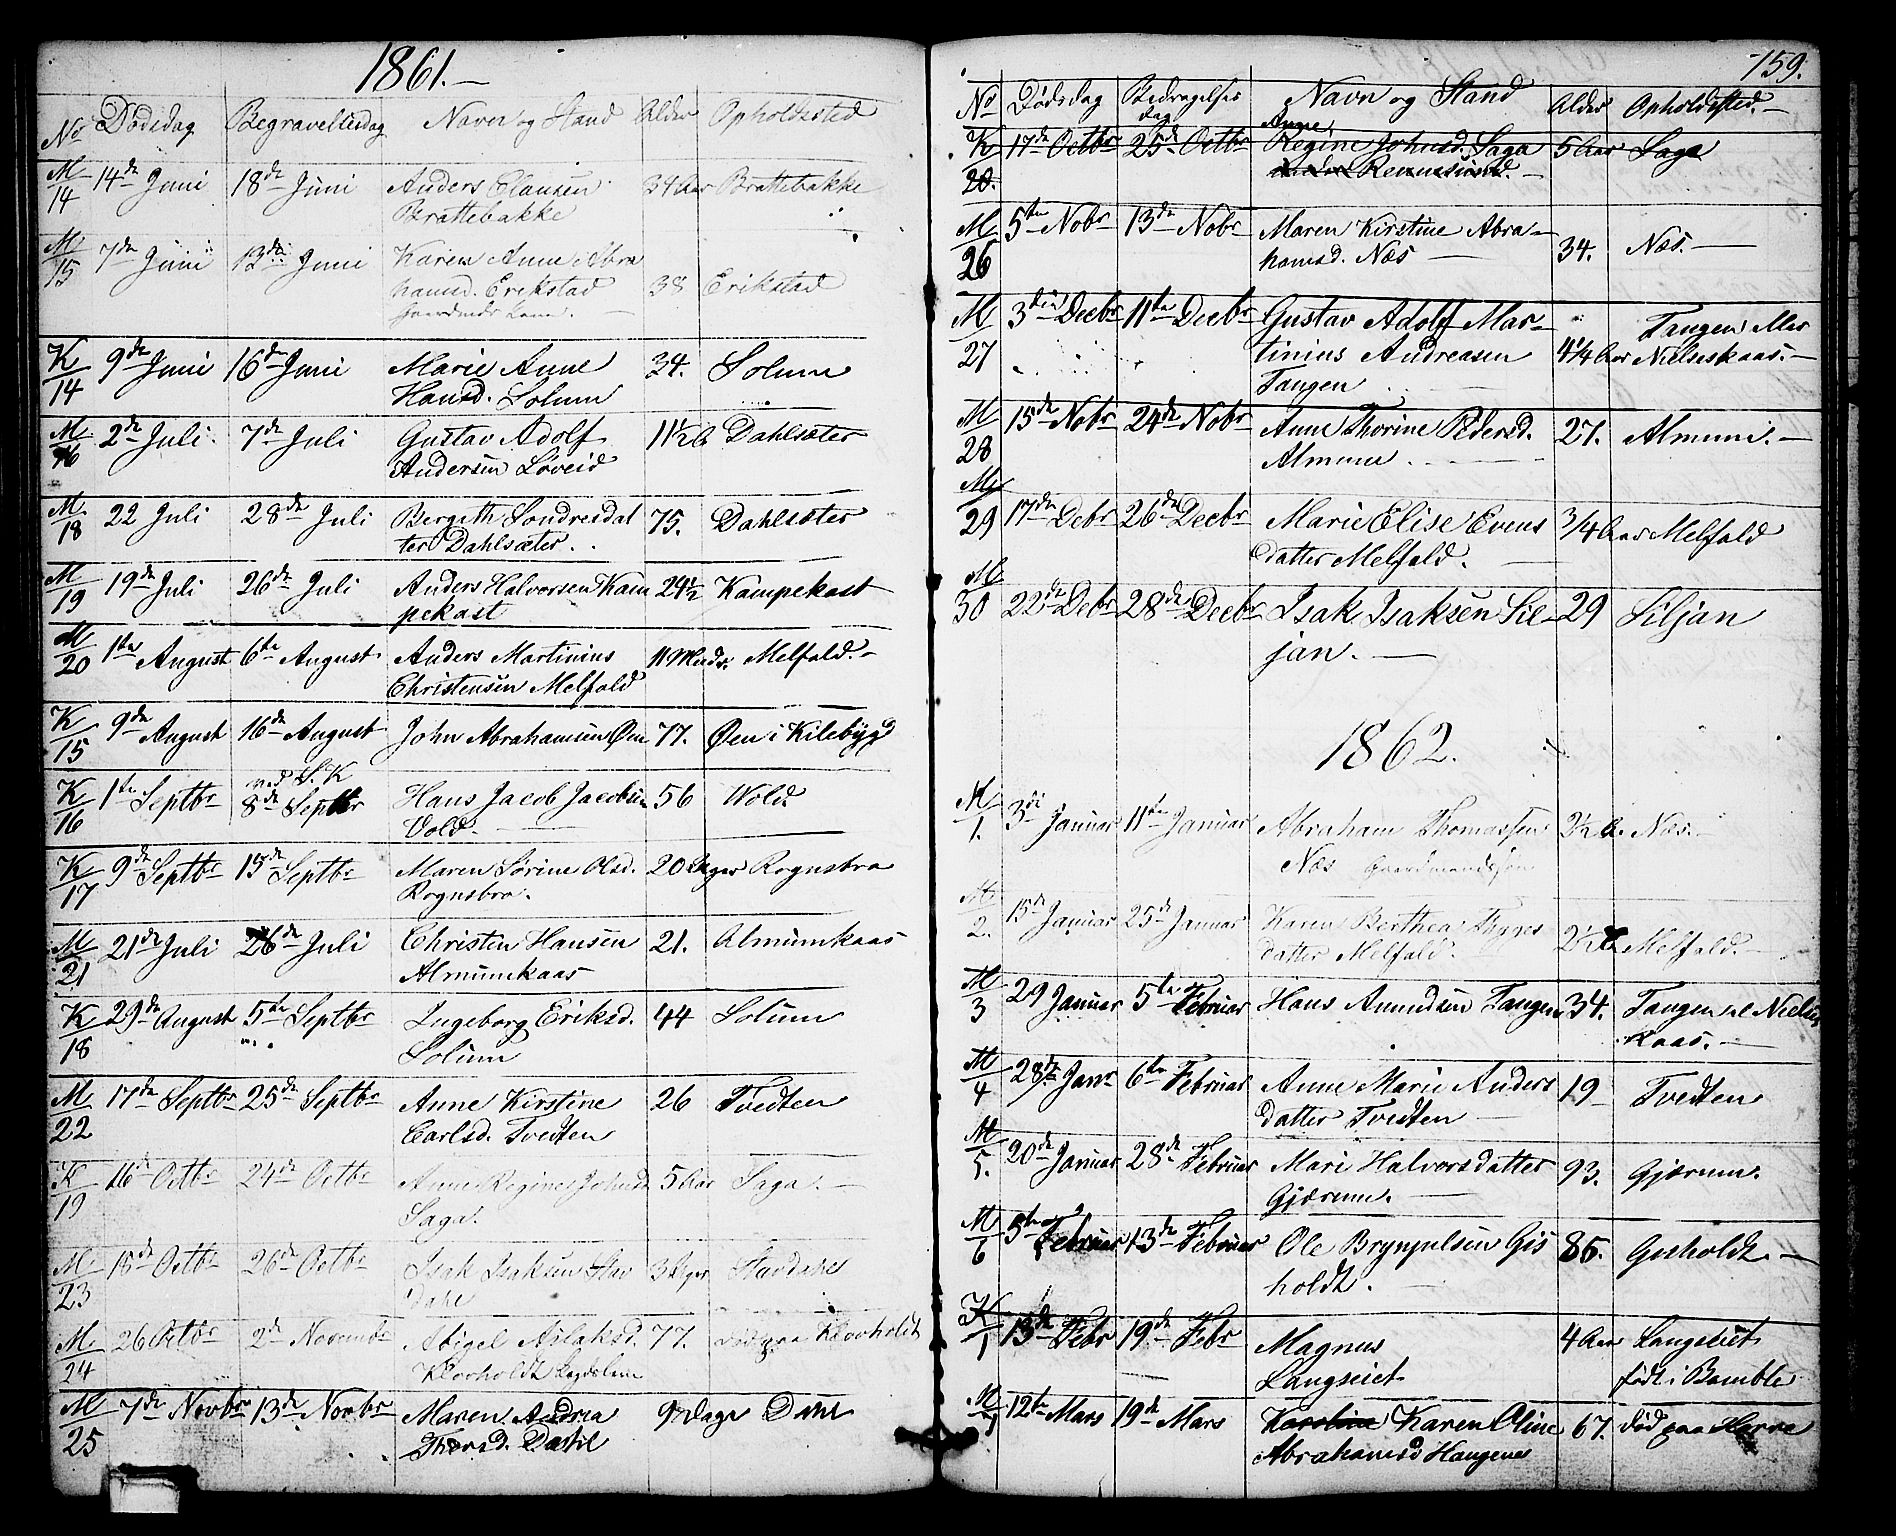 1861.-
No Dödsdag Begravelsesdag Navn og Stand Alder Opholdssted
M/14 14de Juni 18de Juni Anders Clausen 34 Aar Brattebakke
Brattebakke
M/15 7de Juni 13de Juni Karen Anne Abra
hamsd. Erikstad 38 Erikstad
K/14 9de Juni 16de Juni Marie Anne 34. Solum
Hansd. Solum
M/16 2de Juli 7de Juli Gustav Adolf 11½ Dahlsæter
Andersen Løveid
M/18 22 Juli 28de Juli Bergith Sondresdat 75. Dahlsæter
ter Dahlsæter.
M/19 19de Juli 26de Juli Anders Halvorsen Kam 24½ Kampekast
pekast
M/20 1ste August 6te August Anders Martinius 11 Mndr. Melfald.-
Christensen Melfald
K/15 9de August 16de August John Abrahamsen Øen 77. Øen i Kilebygd
K/16 1ste Septbr ved S. K
8de Septbr Hans Jacob Jacobsen 56 Wold
Vold.
K/17 9de Septbr 15de Septbr Maren Sørine Olsd. 20 Uger Rognsbro
Rognsbro.
M/21 21de Juli 26de Juli Christen Hansen 21. Almumkaas
Almumkaas
K/18 29de August 5te Septbr Ingeborg Eriksd. 44 Solum
Solum
M/22 17de Septbr 25de Septbr Anne Kirstine 26 Tvedten
Carlsd. Tvedten
K/19 16de Octbr 24de Octbr Anne Regine Johnsd 5 Aar Saga.
Saga.
M/23 18de Octbr 26de Octbr Isak Isaksen Stav 3 Uger Stavdahl
dahl
M/24 26 Octbr 2de Novembr Abigel Aslaksd. 77. død paa Klovholdt
Klovholdt Lægdslem
M/25 7de Novbr 13de Novbr Maren Andrea 9 Dage
Thorsd.
159.
No Dødsdag Begravelses
dag Navn og Stand Alder Opholdssted.-
Anne
K/20. 17de Octbr 25de Octbr Regine Johnsd. Saga 5 Aar Saga
M/26 5te Nobr 13de Nobr Maren Kirstine Abra-
hamsd. Næs 34. Næs.-
M/27 3die Decbr 11te Decbr Gustav Adolf Mar- Tangen
tinius Andreasen 4¼ Aar Nielseskaas.-
Tangen
M/28 15de Nobr 24de Nobr Anne Thorine Pedersd. 27. Almum.-
Almum.
M/29 17de Debr 26de Decbr Marie Elise Evens 3/4 Aar Melfald
datter Melfald.
M/30 22de Debr 28de Decbr Isak Isaksen Sil- 29 Siljan
jan.-
1862.
M/1. 3di Januar 11te Januar Abraham Thomassen 2½ A. Næs.-
Næs Gaardmandssøn
M/2. 15de Januar 25de Januar Karen Berthea
datter Melfald. 2½ Melfald.-
M/3 29 Januar 5te Februar Hans Amundsen Tangen 34. Tangen
kaas.-
M/4 28de Janr 6te Februar Anne Marie Anders 19 Tvedten
datter Tvedten
M/5. 20de Januar 28de Februar Mari Halvorsdatter 93. Gjerum.
Gjærum.-
M/6 5te Februar 13de Februar Ole Brynjulsen Gis 85. Gisholdt-
holdt.
K/1 13de Febr 19de Febr Magnus 4 Aar Langseiet
Langseiet født i Bamble
M/7 12te Mars 19de Mars Karoline Karen Oline 67. død paa Herre
Abrahamsd Haugene